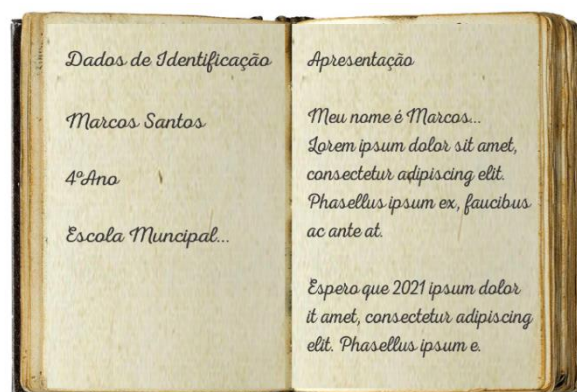 Dados de Identificação
Marcos Santos
4ºAno
Escola Muncipal...
Apresentação
Meu nome é Marcos...
Lorem ipsum dolor sit amet,
consectetur adipiscing elit.
Phasellus ipsum ex, faucibus
ac ante at.
Espero que 2021 ipsum dolor
it amet, consectetur adipiscing
elit. Phasellus ipsum e.